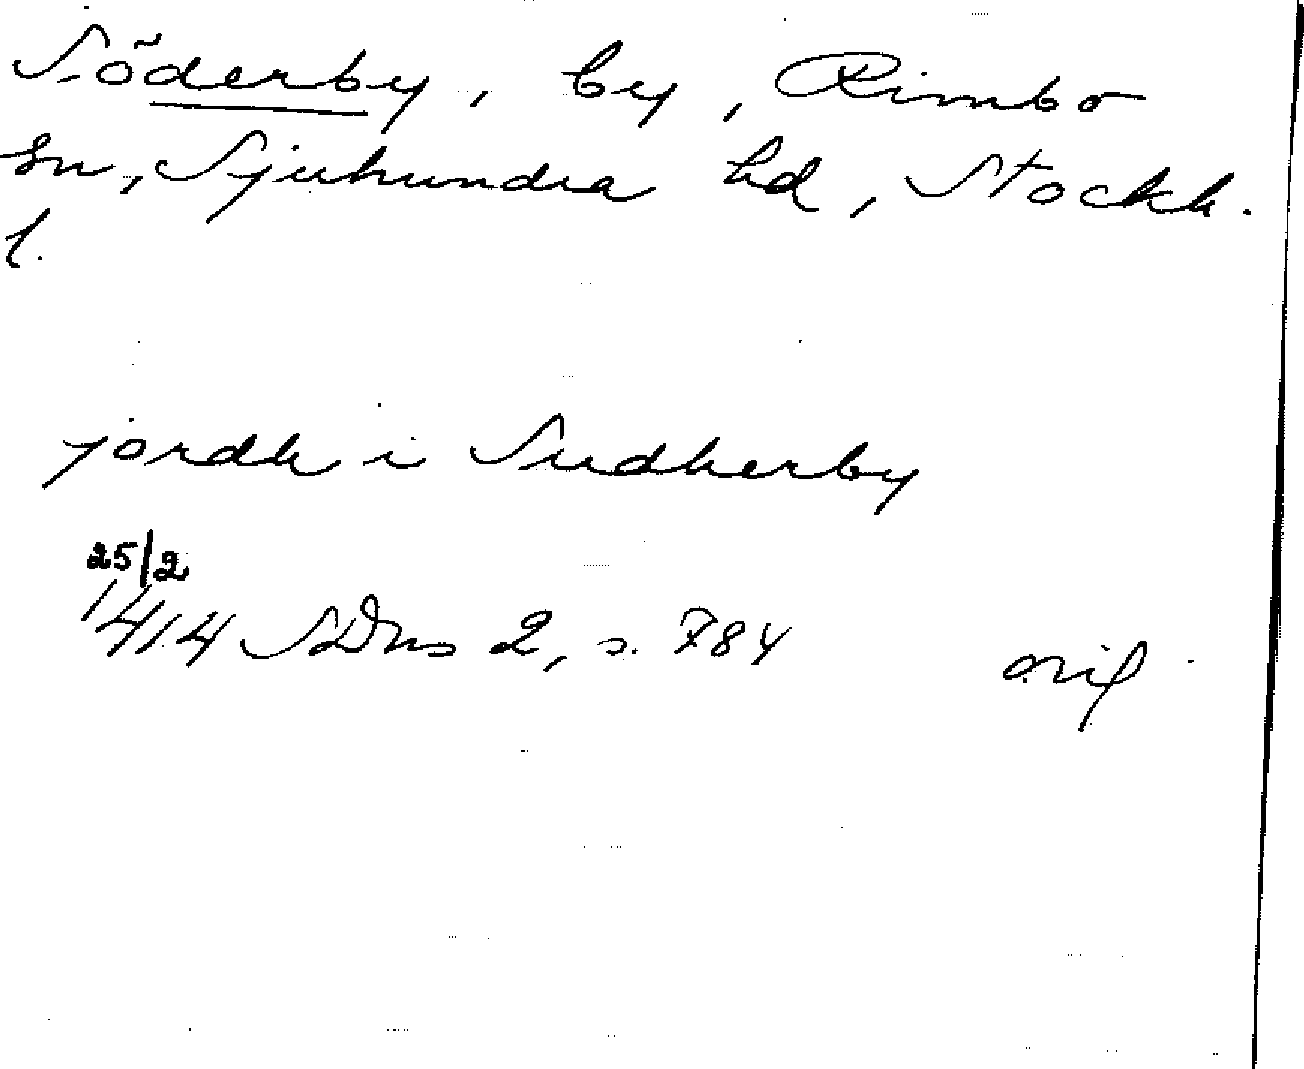 Söderby, by, Rimbo
sn, Sjuhundra hd, Stockh.
l.
jordh i Sudherby
25/2
1414 SDns 2, s. 784 orig